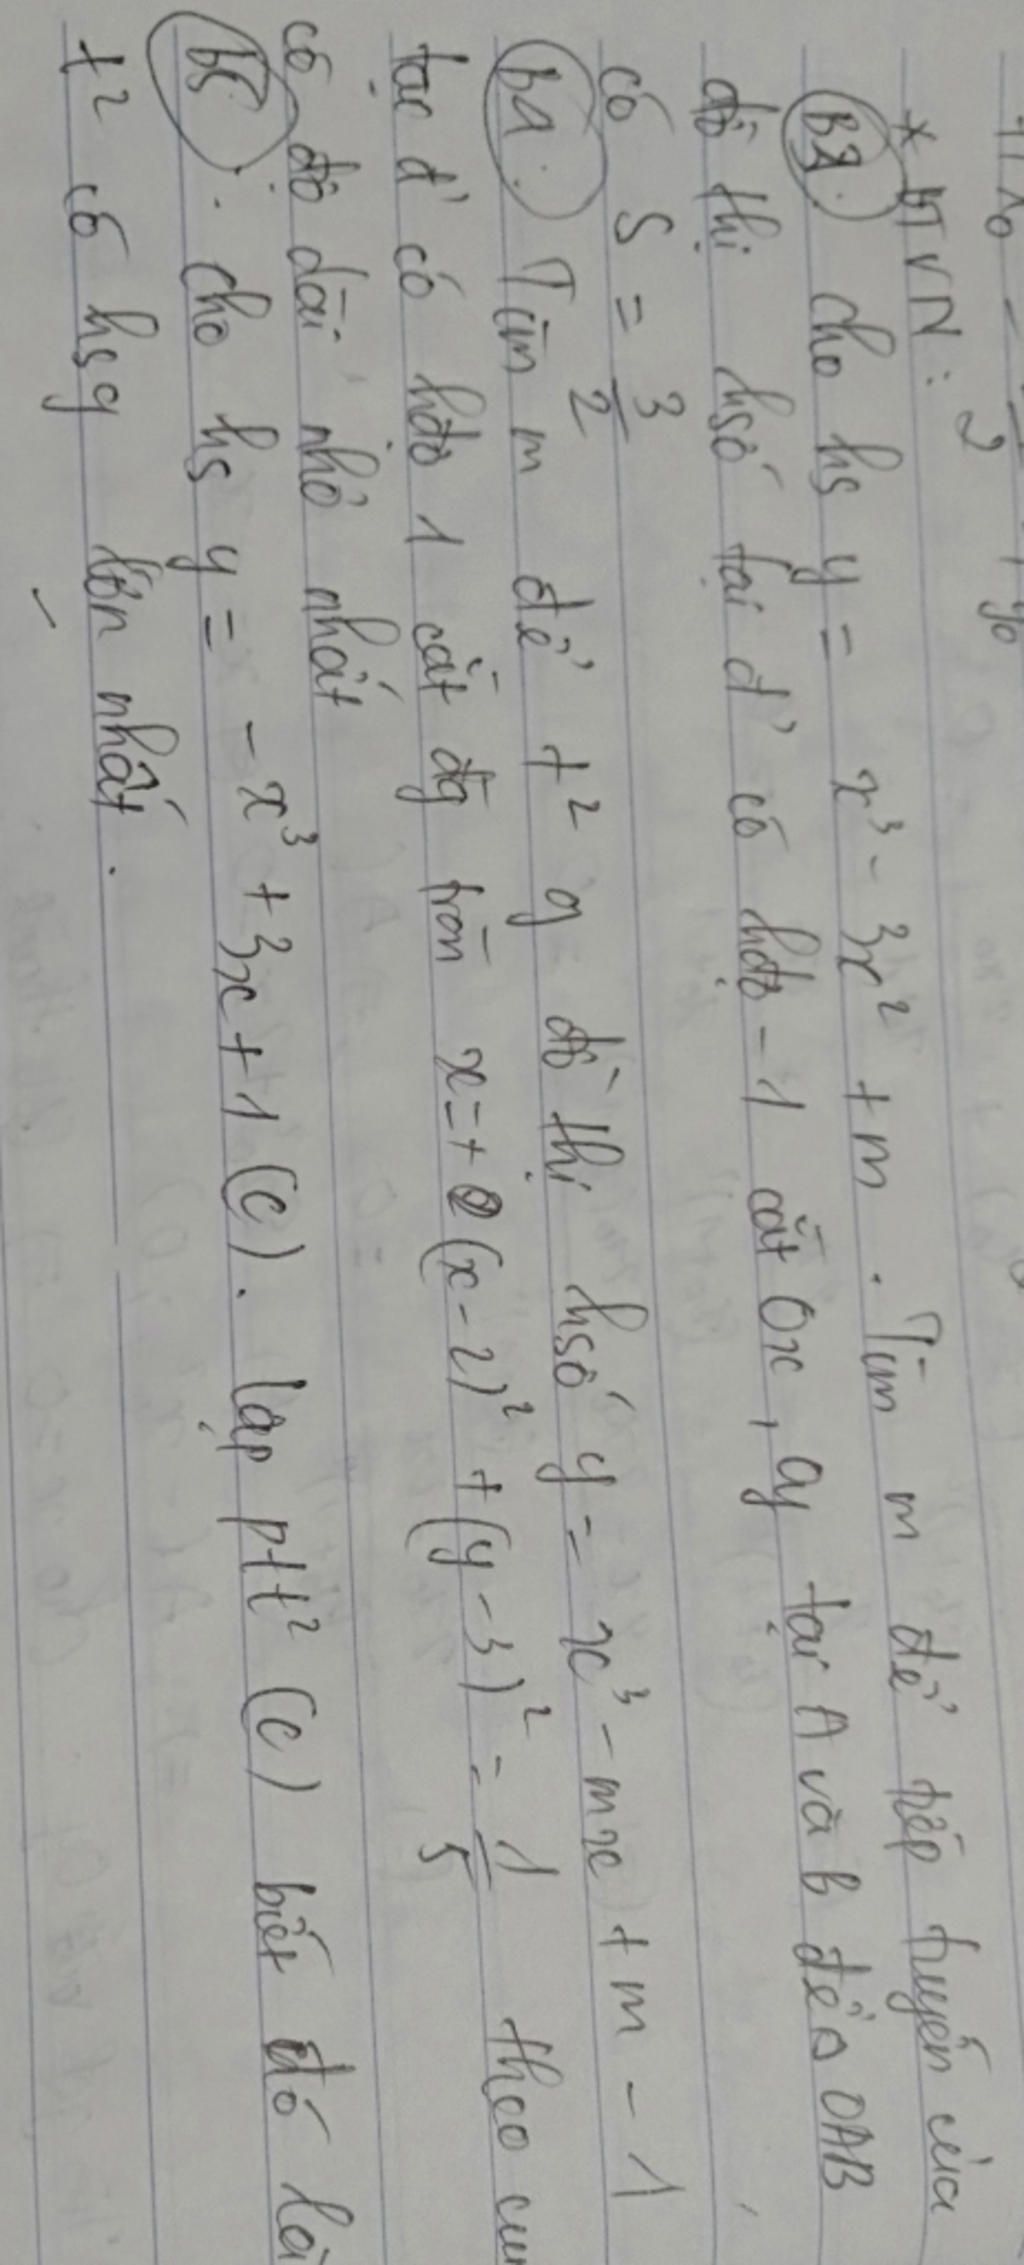 * BTVN:
B3. cho hs y = x³ - 3x² + m. Tìm m để tiếp tuyến của
đồ thị hsố tại đ' có hđộ -1 cắt Ox, Oy tại A và B để Δ OAB
có S = 3/2
B4. Tìm m để t² of đồ thị hsố y = x³ - mx + m - 1
tại đ' có hđộ 1 cắt đg tròn (x-2)² + (y-3)² = 1/5 theo cun
có độ dài nhỏ nhất
B5. cho hs y = -x³ + 3x + 1 (C). lập ptt² (C) biết đó là
t² có hsg lớn nhất.